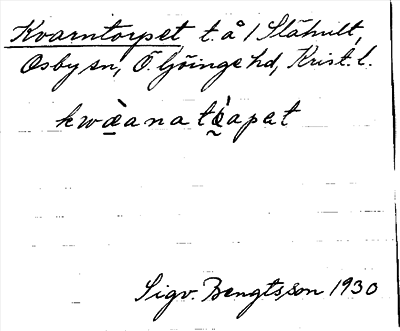 Kvarntorpet t. å 1 Slähult,
Osby sn, Ö. Göinge hd, Krist. l.
kwæ̀anatæ̀apat
Sigv. Bengtsson 1930